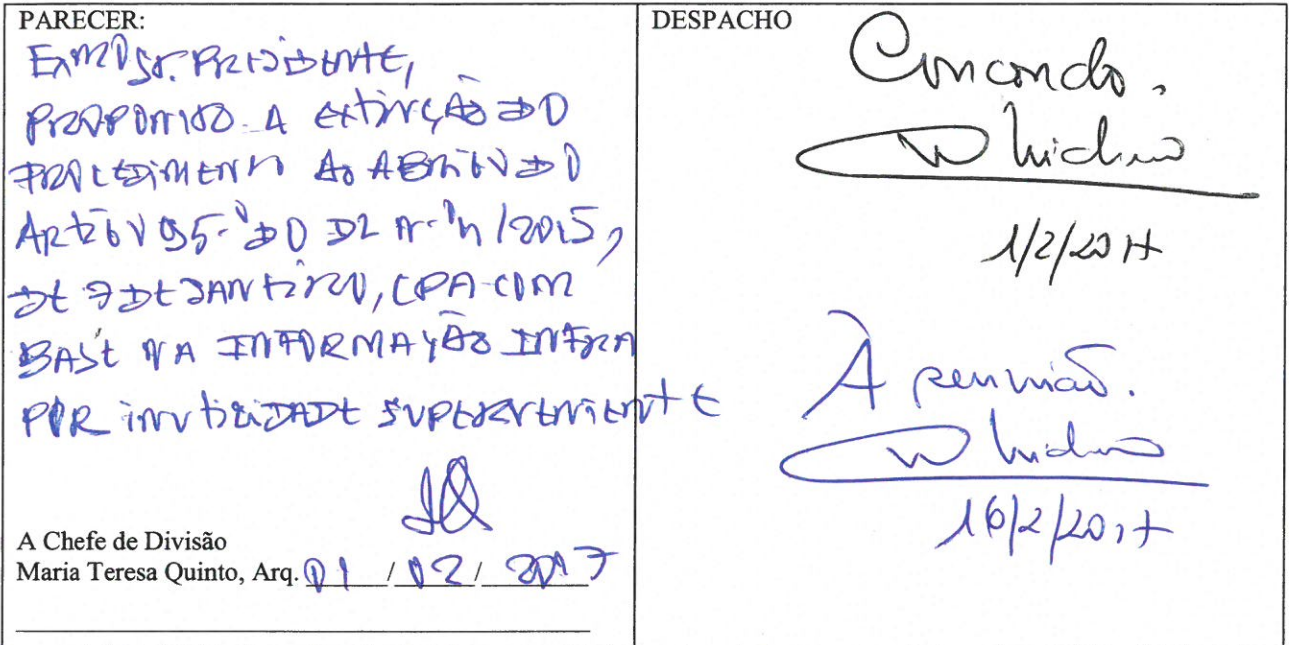 PARECER:
EXMO Sr. PRESIDENTE,
PROPONHO A EXTINÇÃO DO
PROCEDIMENTO AO ABRIGO DO
ARTIGO 95.º DO DL N.º 4/2015,
DE 7 DE JANEIRO, CPA COM
BASE NA INFORMAÇÃO INFRA
POR INUTILIDADE SUPERVENIENTE
A Chefe de Divisão
Maria Teresa Quinto, Arq. 01 / 02 / 2017
DESPACHO
Concordo.
1/2/2017
À reunião.
16/2/2017